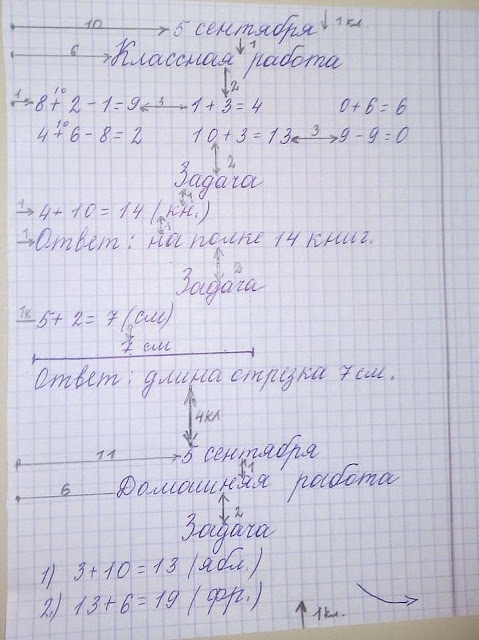 10 5 сентября 1 кл.
6 Классная работа 1
2
1 8 + 2 - 1 = 9 3 1 + 3 = 4 0 + 6 = 6
10
4 + 6 - 8 = 2 10 + 3 = 13 3 9 - 9 = 0
10
2
Задача
1
1 4 + 10 = 14 (кн.)
1
1 Ответ: на полке 14 книг.
2
Задача
1к 5 + 2 = 7 (см)
7 см
Ответ: длина отрезка 7 см.
4кл
11 5 сентября
1
6 Домашняя работа
2
Задача
1) 3 + 10 = 13 (ябл.)
2) 13 + 6 = 19 (фр.)
1кл.